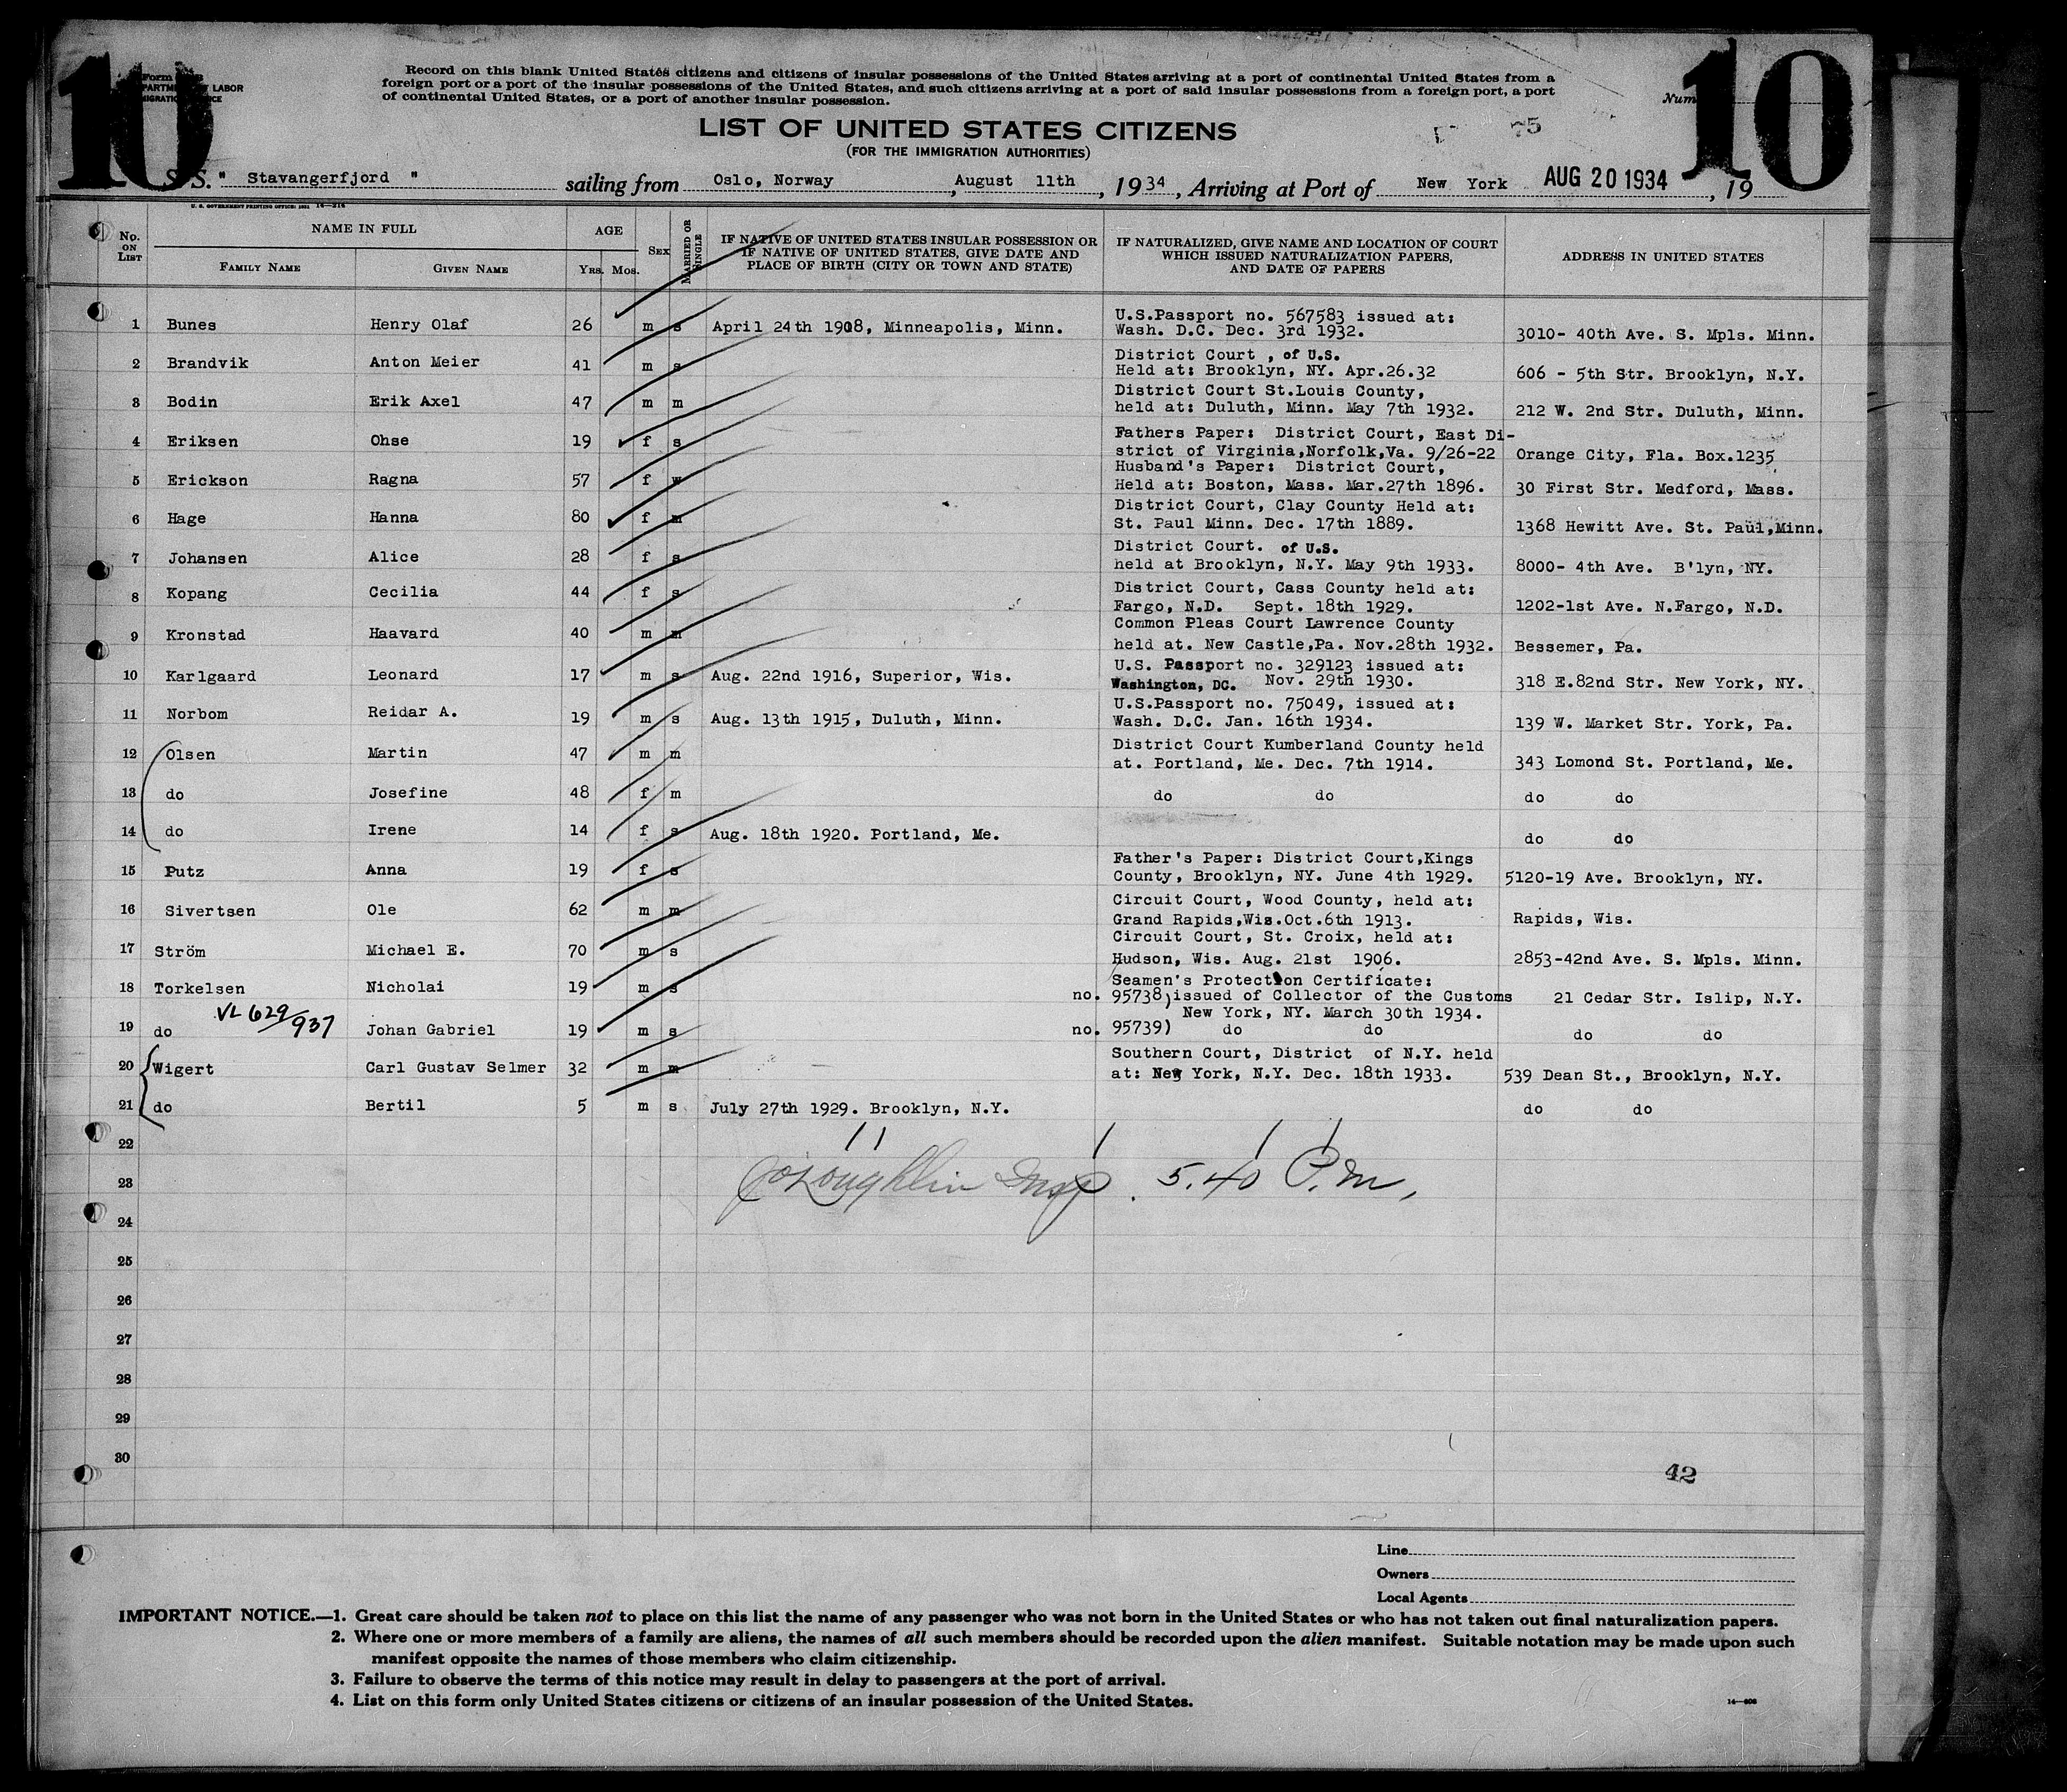 10
10
Form
LABOR
Record on this blank United States citizens and citizens of insular possessions of the United States arriving at a port of continental United States from a
foreign port or a port of the insular possessions of the United States, and such citizens arriving at a port of said insular possessions from a foreign port, a port
of continental United States, or a port of another insular possession.
LIST OF UNITED STATES CITIZENS
(FOR THE IMMIGRATION AUTHORITIES)
S. S. " Stavangerfjord " sailing from Oslo, Norway, August 11th, 1934, Arriving at Port of New York AUG 20 1934, 19
U. S. GOVERNMENT PRINTING OFFICE: 1931
No. ON LIST
NAME IN FULL
FAMILY NAME GIVEN NAME
AGE
YRS. MOS.
SEX
MARRIED OR SINGLE
IF NATIVE OF UNITED STATES INSULAR POSSESSION OR
IF NATIVE OF UNITED STATES, GIVE DATE AND
PLACE OF BIRTH (CITY OR TOWN AND STATE)
IF NATURALIZED, GIVE NAME AND LOCATION OF COURT
WHICH ISSUED NATURALIZATION PAPERS,
AND DATE OF PAPERS
ADDRESS IN UNITED STATES
1 Bunes Henry Olaf 26 m s April 24th 1908, Minneapolis, Minn. U.S.Passport no. 567583 issued at:
Wash. D.C. Dec. 3rd 1932. 3010- 40th Ave. S. Mpls. Minn.
2 Brandvik Anton Meier 41 m s District Court , of U.S.
Held at: Brooklyn, NY. Apr.26.32 606 - 5th Str. Brooklyn, N.Y.
3 Bodin Erik Axel 47 m m District Court St.Louis County,
held at: Duluth, Minn. May 7th 1932. 212 W. 2nd Str. Duluth, Minn.
4 Eriksen Ohse 19 f s Fathers Paper: District Court, East Di-
strict of Virginia,Norfolk,Va. 9/26-22 Orange City, Fla. Box.1235
5 Erickson Ragna 57 f w Husband's Paper: District Court,
Held at: Boston, Mass. Mar.27th 1896. 30 First Str. Medford, Mass.
6 Hage Hanna 80 f m District Court, Clay County Held at:
St. Paul Minn. Dec. 17th 1889. 1368 Hewitt Ave. St. Paul,Minn.
7 Johansen Alice 28 f s District Court. of U.S.
held at Brooklyn, N.Y. May 9th 1933. 8000- 4th Ave. B'lyn, NY.
8 Kopang Cecilia 44 f s District Court, Cass County held at:
Fargo, N.D. Sept. 18th 1929. 1202-1st Ave. N.Fargo, N.D.
9 Kronstad Haavard 40 m m Common Pleas Court Lawrence County
held at. New Castle,Pa. Nov.28th 1932. Bessemer, Pa.
10 Karlgaard Leonard 17 m s Aug. 22nd 1916, Superior, Wis. U.S. Passport no. 329123 issued at:
Washington, DC. Nov. 29th 1930. 318 E.82nd Str. New York, NY.
11 Norbom Reidar A. 19 m s Aug. 13th 1915, Duluth, Minn. U.S.Passport no. 75049, issued at:
Wash. D.C. Jan. 16th 1934. 139 W. Market Str. York, Pa.
12 Olsen Martin 47 m m District Court Kumberland County held
at. Portland, Me. Dec. 7th 1914. 343 Lomond St. Portland, Me.
13 do Josefine 48 f m do do do do
14 do Irene 14 f s Aug. 18th 1920. Portland, Me. do do
15 Putz Anna 19 f s Father's Paper: District Court,Kings
County, Brooklyn, NY. June 4th 1929. 5120-19 Ave. Brooklyn, NY.
16 Sivertsen Ole 62 m m Circuit Court, Wood County, held at:
Grand Rapids,Wis.Oct.6th 1913. Rapids, Wis.
17 Ström Michael E. 70 m s Circuit Court, St. Croix, held at:
Hudson, Wis. Aug. 21st 1906. 2853-42nd Ave. S. Mpls. Minn.
18 Torkelsen Nicholai 19 m s Seamen's Protection Certificate:
no. 95738)issued of Collector of the Customs 21 Cedar Str. Islip, N.Y.
New York, NY. March 30th 1934.
VL 629/937
19 do Johan Gabriel 19 m s no. 95739) do do do do
20 Wigert Carl Gustav Selmer 32 m m Southern Court, District of N.Y. held
at: New York, N.Y. Dec. 18th 1933. 539 Dean St., Brooklyn, N.Y.
21 do Bertil 5 m s July 27th 1929. Brooklyn, N.Y. do do
22
23 5.40 P.M.
24
25
26
27
28
29
30
42
Line
Owners
Local Agents
IMPORTANT NOTICE.—1. Great care should be taken not to place on this list the name of any passenger who was not born in the United States or who has not taken out final naturalization papers.
2. Where one or more members of a family are aliens, the names of all such members should be recorded upon the alien manifest. Suitable notation may be made upon such
manifest opposite the names of those members who claim citizenship.
3. Failure to observe the terms of this notice may result in delay to passengers at the port of arrival.
4. List on this form only United States citizens or citizens of an insular possession of the United States.